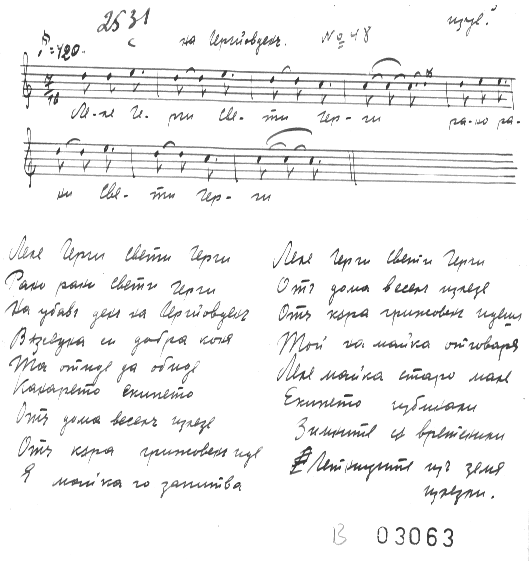 2531
на Герйовденъ. № 48
=420.
7
16
Ле-ле Ге-рги Све-ти Гер-ги ра-но ра-
но Све-ти Гер-ги
Леле Герги свети Герги
Рано рано свети Герги
На убавъ денъ на Герйовденъ
Възседна си добра коня
Та отиде да обиде
Отъ дома веселъ излезе
Отъ кора грижовенъ иде
Я майка го запитва
Леле Герги Свети Герги
Отъ дома веселъ излезе
Отъ кора грижовенъ идеш
Той на майка отговаря
Леле майка стара мале
Зимните са
Летниците изъ земя
излезли.
В 03063